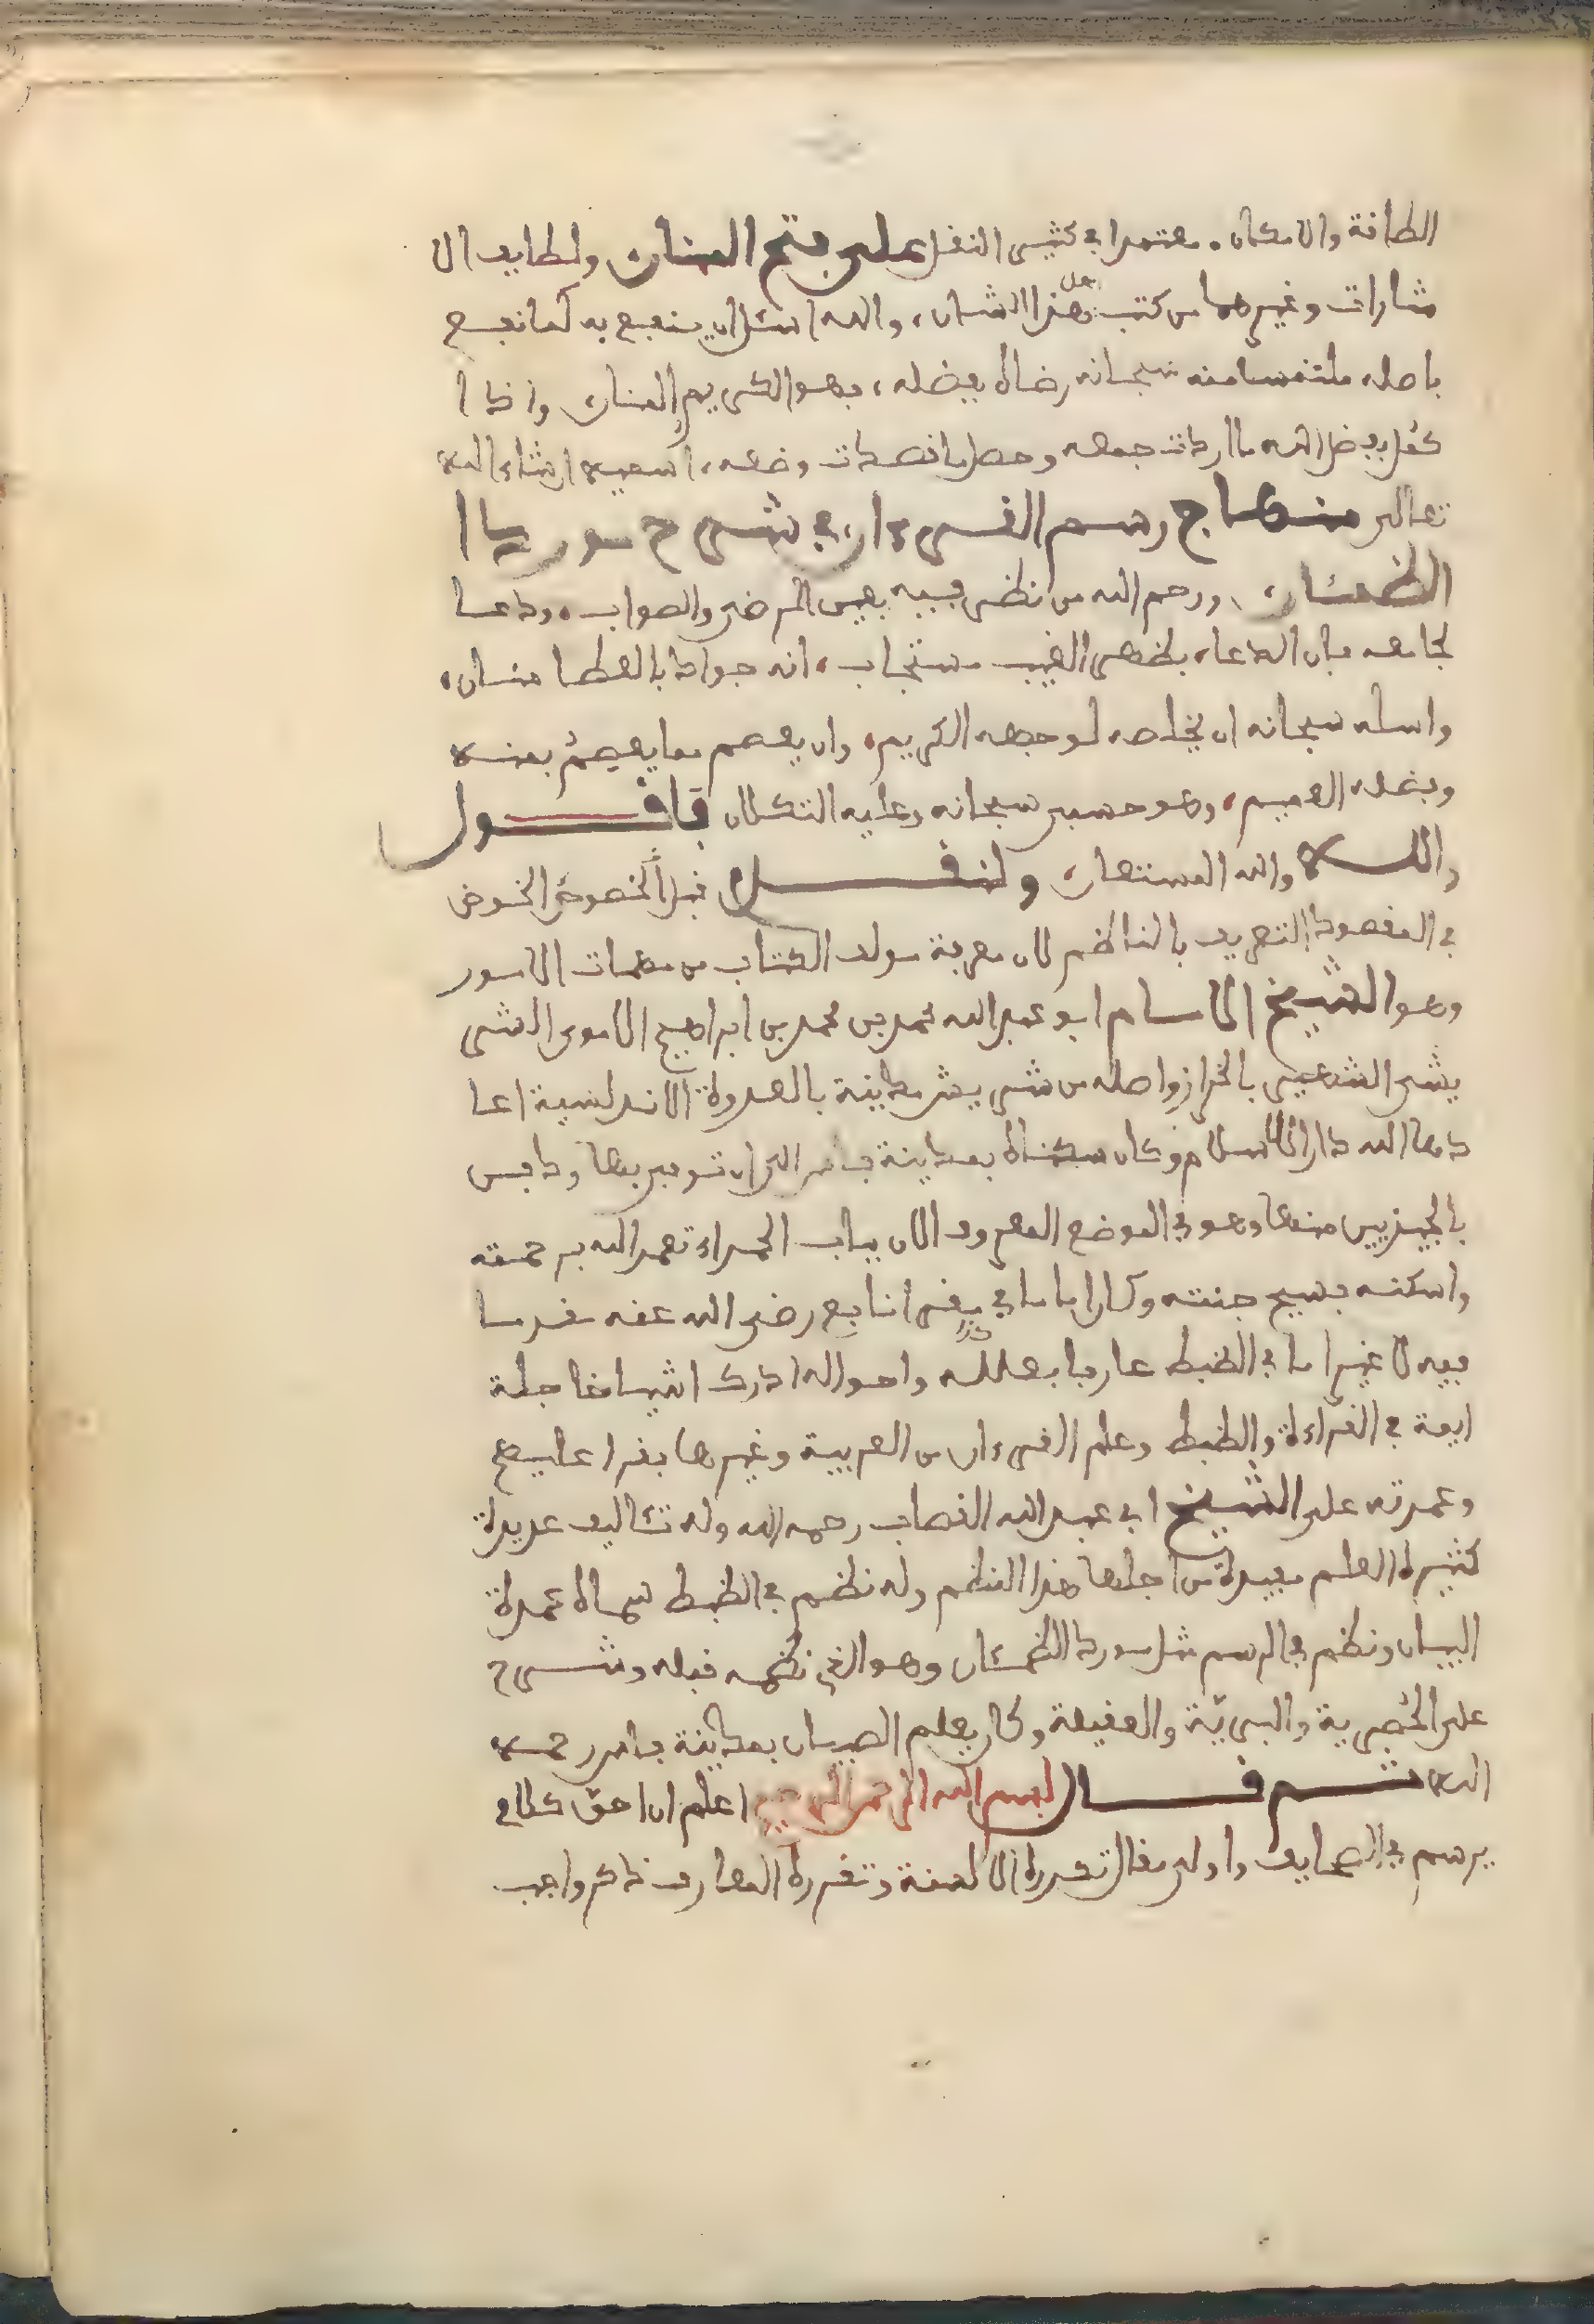 الطاقة والامكان، معتمدا في كثير النقل على فتح المنان ولطايف الا
شارات وغيرهما من كتب اهل هذا الشان، والله اسئل ان ينفع به كما نفع
باصله ملتمسا منه سبحانه رضاه بفضله، فهو الكريم المنان واذا
كمل بفضل الله ما اردت جمعه وحصل ما قصدت وضعه، اسميه ان شاء الله
تعالى منهاج رسم القرءان، في شرح مورد ا
الظمئان، ورحم الله من نظر فيه بعين الرضى والصواب، ودعا
لجامعه فان الدعاء بظهر الغيب مستجاب، انه جواد بالعطا منان،
واسئله سبحانه ان يخلصه لوجهه الكريم، وان يعصم مما يصم بمنه
وبفضله العميم، وهو حسبي سبحانه وعليه التكلان فاقول
والله والله المستعان، ولنقدم قبل الخوض
في المقصود التعريف بالناظم لان معرفة مولف الكتاب من مهمات الامور
وهو الشيخ الامام ابو عبد الله محمد بن محمد بن ابراهيم الاموى الشر
يشى الشهير بالخراز واصله من شريش مدينة بالعدوة الاندلسية اعا
دها الله دار الاسلام وكان سكناه بمدينة فاس الى ان توفي بها ودفن
بالجيزيين منها وهو في الموضع المعروف الان بباب الحمراء تغمد الله برحمته
واسكنه فسيح جنته وكان اماما في مقرإ نافع رضى الله عنه مقدما
فيه لا غير اماما في الضبط عارفا بعلله واحواله ادرك اشياخا جلة
ايمة في القراءة والضبط وعلم القرءان من العربية وغيرها فقرا عليهم
وعمدته على الشيخ ابي عبد الله القصاب رحمه الله وله تئاليف عديدة
كثيرة العلم مفيدة من اجلها هذا النظم وله نظم في الضبط سماه عمدة
البيان ونظم في الرسم مثل مورد الظمئان وهو الذي نظمه قبله وشرح
على الحصرية والبرية والعقيلة وكان يعلم الصبيان بمدينة فاس رحمه
الله ثم قال بسم الله الرحمن الرحيم اعلم ان احق كلام
يرسم في الصحايف واولى مقال تعدده الالسنة وتقرره المعارف ذاكر واجب